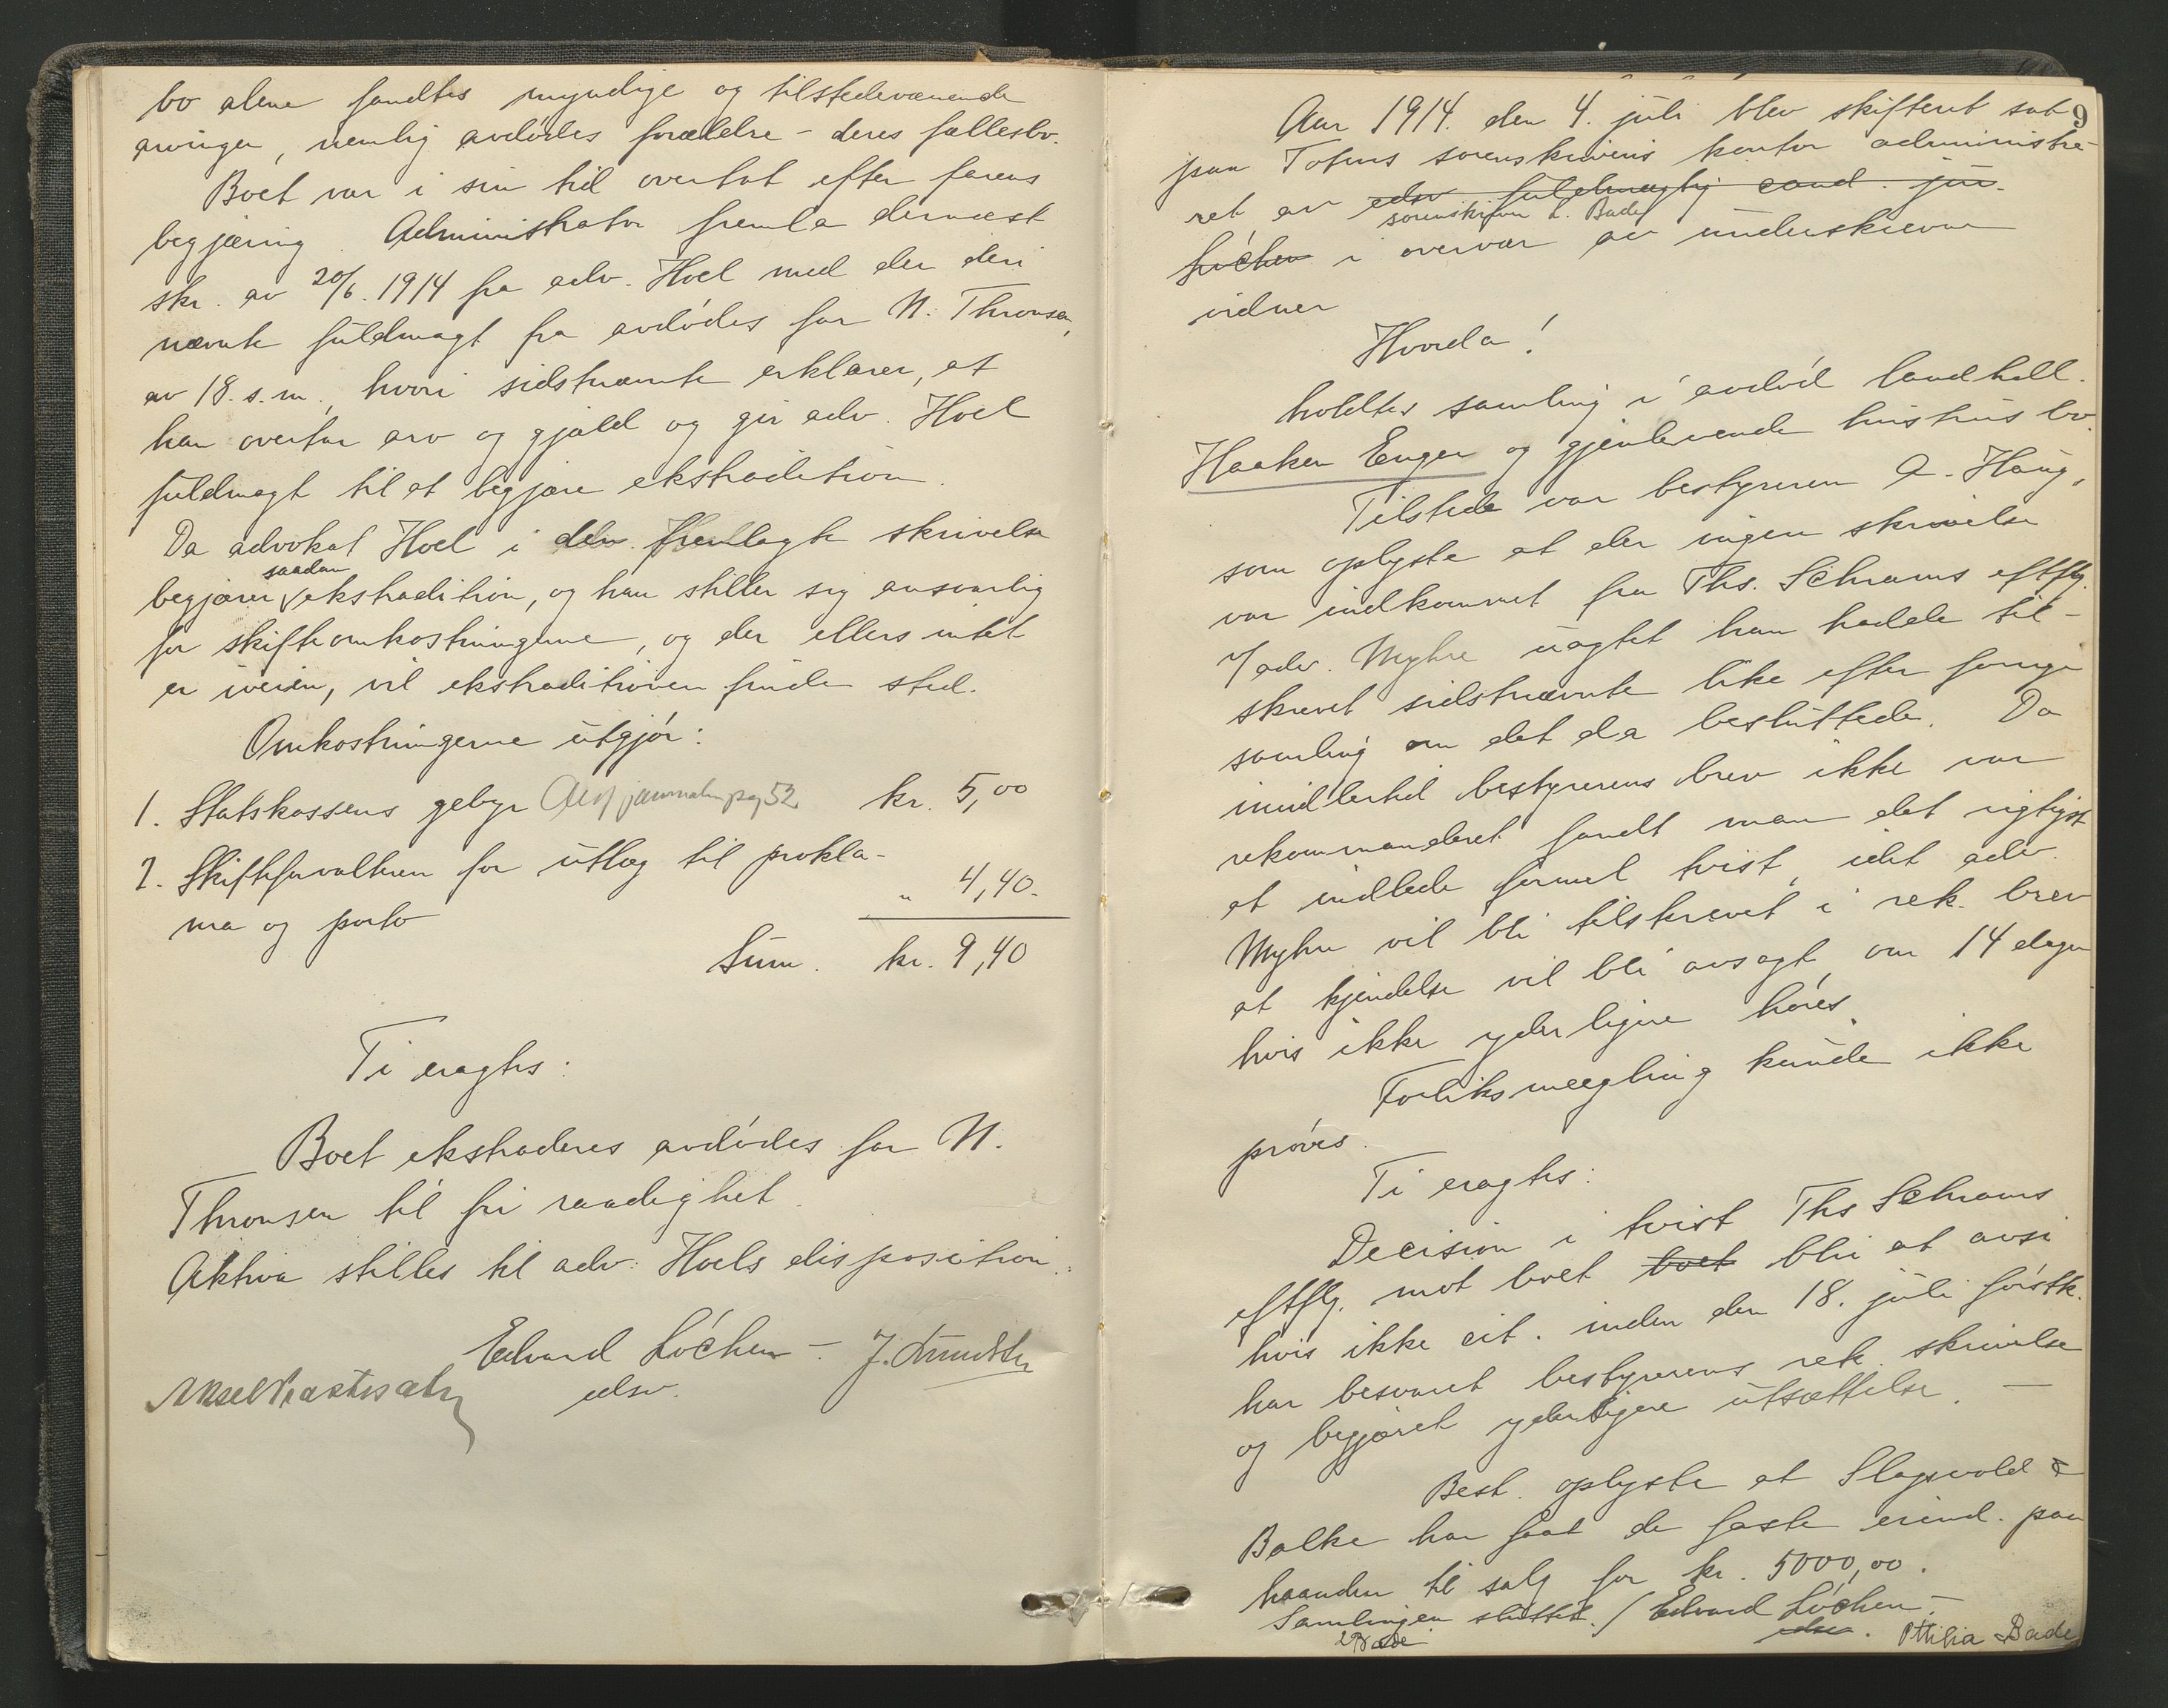 bo alene fandtes myndige og tilstedeværende
arvinger, nemlig avdødes forældre - deres fællesbo.
Boet var i sin tid overtat efter farens
begjæring. Administrator fremla dernæst
skr. av 20/6. 1914 fra adv. Hoel med den deri
nævnte fuldmagt fra avdødes far N. Thronsen,
av 18. s. m., hvori sidstnævnte erklærer, at
han overtar arv og gjæld og gir adv. Hoel
fuldmagt til at begjære ekstradition.
Da advokat Hoel i den fremlagte skrivelse
saadan
begjærer ekstradition, og han stiller sig ansvarlig
for skifteomkostningerne, og der ellers intet
er iveien, vil ekstraditionen finde sted.
Omkostningerne utgjør:
1. Statskassens gebyr pag 52 kr. 5,00
2. Skifteforvalteren for utlæg til prokla-
ma og porto " 4,40.
Sum. kr. 9,40
Ti eragtes:
Boet ekstraderes avdødes far N.
Thronsen til fri raadighet.
Aktiva stilles til adv. Hoels disposition.
Edvard Lóchen - J.
edsv.
9
Aar 1914. den 4. juli blev skifteret sat
paa Totens sorenskriveris kontor administre-
ret av edsv. fuldmægtig cand. jur.
sorenskriver L. Bade
Lóchen i overvær av underskrevne
vidner
Hvorda!
holdtes samling i avdód landhdl.
Haaken Enger og gjenlevende hustrus bo.
Tilstede var bestyreren A. Haug,
som oplyste at der ingen skrivelse
var indkommet fra Ths. Schrams eftflg.
v/adv. Myhre uagtet han hadde til-
skrevet sidstnævnte like efter forrige
samling om det da besluttede. Da
imidlertid bestyrerens brev ikke var
rekommanderet fandt man det rigtigst
at indlede formel tvist, idet adv.
Myhre vil bli tilskrevet i rek. brev
at kjendelse vil bli avsagt om 14 dager
hvis ikke yderligere høres.
Forliksmægling kunde ikke
prøves.
Ti eragtes:
Decision i tvist Ths Schrams
eftflg. mot boet boet blir at avsi
hvis ikke cit. inden den 18. juli førstk.
har besvaret bestyrerens rek. skrivelse
og begjæret yderligere utsættelse. —
Best. oplyste at Slagsvold &
Balke har faat de faste eiend. paa
haanden til salg for kr. 5000,00.
Samlingen sluttet. / Edvard Lóchen -
L Bade edsv. Ottilia Bade